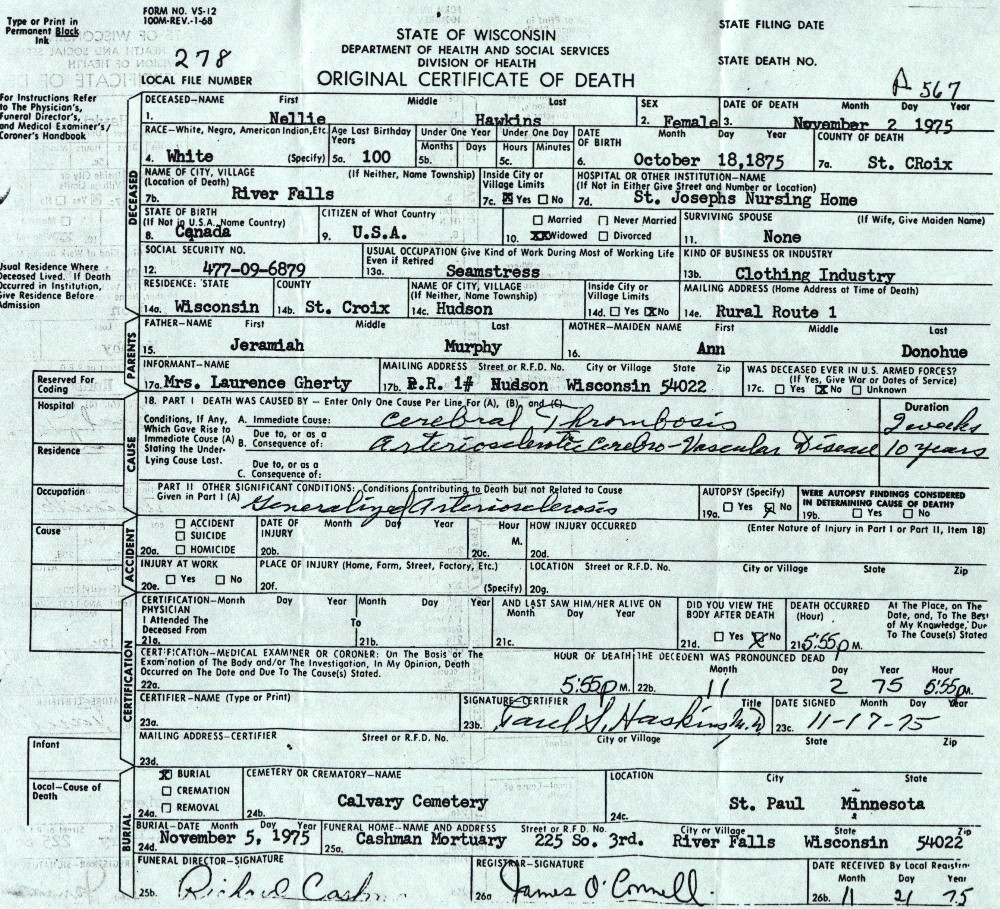 FORM NO. VS-12
100M-REV.-1-68
Type or Print in
Permanent Black
Ink
278
LOCAL FILE NUMBER
STATE OF WISCONSIN
DEPARTMENT OF HEALTH AND SOCIAL SERVICES
DIVISION OF HEALTH
ORIGINAL CERTIFICATE OF DEATH
STATE FILING DATE
STATE DEATH NO.
A 567
For Instructions Refer
to The Physician's,
Funeral Director's,
and Medical Examiner's/
Coroner's Handbook
DECEASED
DECEASED—NAME First Middle Last SEX DATE OF DEATH Month Day Year
1. Nellie Hawkins 2. Female 3. November 2 1975
RACE—White, Negro, American Indion, Etc. Age Last Birthday Years Under One Year Months Days Under One Day Hours Minutes DATE OF BIRTH Month Day Year COUNTY OF DEATH
4. White (Specify) 5a. 100 5b. 5c. 6. October 18,1875 7a. St. CRoix
NAME OF CITY, VILLAGE (If Neither, Name Township) Inside City or HOSPITAL OR OTHER INSTITUTION—NAME
(Location of Death) Village Limits (If Not in Either Give Street and Number or Location)
7b. River Falls 7c. X Yes No 7d. St. Josephs Nursing Home
STATE OF BIRTH CITIZEN of What Country Married Never Married SURVIVING SPOUSE (If Wife, Give Maiden Name)
(If Not in U.S.A., Name Country)
8. Canada 9. U.S.A. 10. XX Widowed Divorced 11. None
SOCIAL SECURITY NO. USUAL OCCUPATION Give Kind of Work During Most of Working Life Even if Retired KIND OF BUSINESS OR INDUSTRY
12. 477-09-6879 13a. Seamstress 13b. Clothing Industry
Usual Residence Where
Deceased Lived. If Death
Occurred in Institution,
Give Residence Before
Admission
RESIDENCE: STATE COUNTY NAME OF CITY, VILLAGE (If Neither, Name Township) Inside City or Village Limits MAILING ADDRESS (Home Address at Time of Death)
14a. Wisconsin 14b. St. Croix 14c. Hudson 14d. Yes X No 14e. Rural Route 1
PARENTS
FATHER—NAME First Middle Last MOTHER—MAIDEN NAME First Middle Last
15. Jeramiah Murphy 16. Ann Donohue
INFORMANT—NAME MAILING ADDRESS Street or R.F.D. No. City or Village State Zip WAS DECEASED EVER IN U.S. ARMED FORCES?
(If Yes, Give War or Dates of Service)
17a. Mrs. Laurence Gherty 17b. R.R. 1# Hudson Wisconsin 54022 17c. Yes X No Unknown
Reserved For
Coding
Hospital
Residence
Occupation
Cause
Infant
Local—Cause of
Death
CAUSE
18. PART I DEATH WAS CAUSED BY — Enter Only One Cause Per Line For (A), (B), and (C) Duration
Conditions, If Any, Which Gave Rise to Immediate Cause (A) Stating the Under-Lying Cause Last.
A. Immediate Cause: Cerebral Thrombosis 2 weeks
B. Due to, or as a Consequence of: Arteriosclerotic Cerebro-Vascular Disease 10 years
C. Due to, or as a Consequence of:
PART II OTHER SIGNIFICANT CONDITIONS: Conditions Contributing to Death but not Related to Cause
Given in Part I (A) Generalized Arteriosclerosis
AUTOPSY (Specify) WERE AUTOPSY FINDINGS CONSIDERED
IN DETERMINING CAUSE OF DEATH?
19a. Yes X No 19b. Yes No
ACCIDENT
ACCIDENT
SUICIDE
HOMICIDE
20a.
DATE OF INJURY Month Day Year Hour HOW INJURY OCCURRED (Enter Nature of Injury in Part I or Part II, Item 18)
20b. M. 20c. 20d.
INJURY AT WORK PLACE OF INJURY (Home, Farm, Street, Factory, Etc.) LOCATION Street or R.F.D. No. City or Village State Zip
20e. Yes No 20f. (Specify) 20g.
CERTIFICATION
CERTIFICATION—Month Day Year Month Day Year AND LAST SAW HIM/HER ALIVE ON Month Day Year DID YOU VIEW THE BODY AFTER DEATH DEATH OCCURRED (Hour) At The Place, on The Date, and, To The Best of My Knowledge, Due To The Cause(s) Stated
PHYSICIAN
I Attended The
Deceased From To
21a. 21b. 21c. 21d. Yes X No 21 5:55 P M.
CERTIFICATION—MEDICAL EXAMINER OR CORONER: On The Basis of The
Examination of The Body and/or The Investigation, In My Opinion, Death
Occurred on The Date and Due To The Cause(s) Stated.
HOUR OF DEATH THE DECEDENT WAS PRONOUNCED DEAD
Month Day Year Hour
22a. 5:55 P M. 22b. 11 2 75 5:55 P M.
CERTIFIER—NAME (Type or Print) SIGNATURE—CERTIFIER Title DATE SIGNED Month Day Year
23a. 23b. Paul S. Haskins M.D. 23c. 11-17-75
MAILING ADDRESS—CERTIFIER Street or R.F.D. No. City or Village State Zip
23d.
BURIAL
X BURIAL
CREMATION
REMOVAL
24a.
CEMETERY OR CREMATORY—NAME LOCATION City State
24b. Calvary Cemetery 24c. St. Paul Minnesota
BURIAL—DATE Month Day Year FUNERAL HOME—NAME AND ADDRESS Street or R.F.D. No. City or Village State Zip
24d. November 5, 1975 25a. Cashman Mortuary 225 So. 3rd. River Falls Wisconsin 54022
FUNERAL DIRECTOR—SIGNATURE REGISTRAR—SIGNATURE DATE RECEIVED By Local Registrar
Month Day Year
25b. Richard Cashm 26a James O'Connell. 26b. 11 21 75